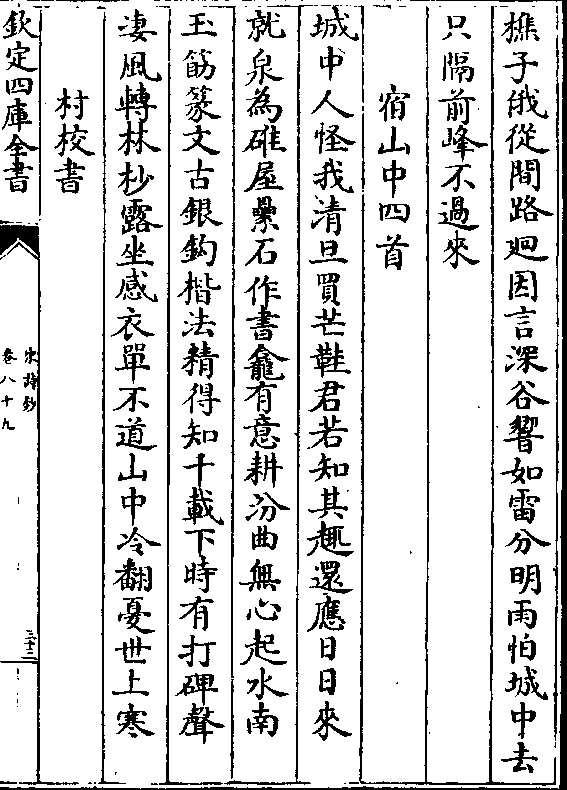 樵子俄從間路廻因言深谷響如雷分明雨怕城中去
只隔前峰不過來
宿山中四首
城中人怪我清旦買芒鞋君若知其趣還應日日來
就泉為碓屋壘石作書龕有意耕汾曲無心起水南
玉筯篆文古銀鈎楷法精得知千載下時有打碑聲
凄風轉林杪露坐感衣單不道山中冷翻憂世上寒
村校書
欽定四庫全書
宋詩鈔
卷八十九
三十三